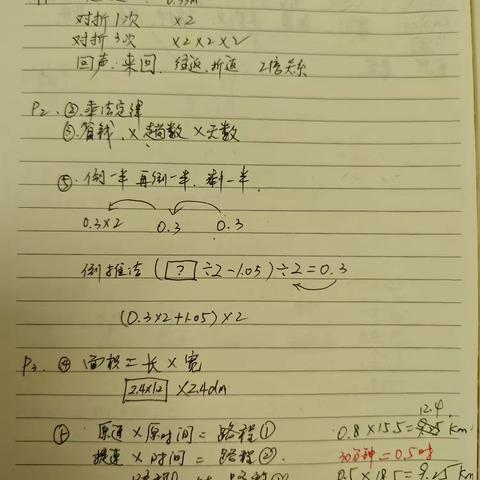 对折1次 ×2
对折3次 ×2×2×2
回声.来回. 往返.折返 2倍关系
P2. ②.乘法定律
③.算钱. ×趟数×天数
⑤.倒一半 再倒一半. 剩一半.
0.3×2 0.3 0.3
倒推法 ( ? ÷2-1.05)÷2=0.3
(0.3×2+1.05)×2
P3. ④ 面积=长×宽
2.4×12 ×2.4dm
原速×原时间=路程①
12.4
0.8×15.5= km
提速×时间=路程②.
30分钟=0.5时
0.5×18.5=9.25 km